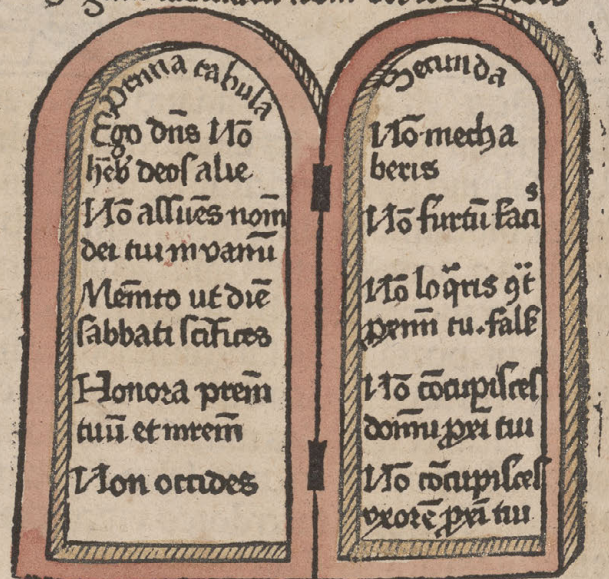 Prima tabula
Ego dn̄s Nō
hēb deos alie
Nō assūes nom̄
dei tui in vanū
Mem̄to ut diē
sabbati sc̄ifices
Honora prem̄
tuū et mrem̄
Non occides
Secunda
Nō mecha
beris
Nō furtū facis
Nō loq̄ris
Nō cōcupisces
domū tui
Nō cōcupisces
uxorē tui